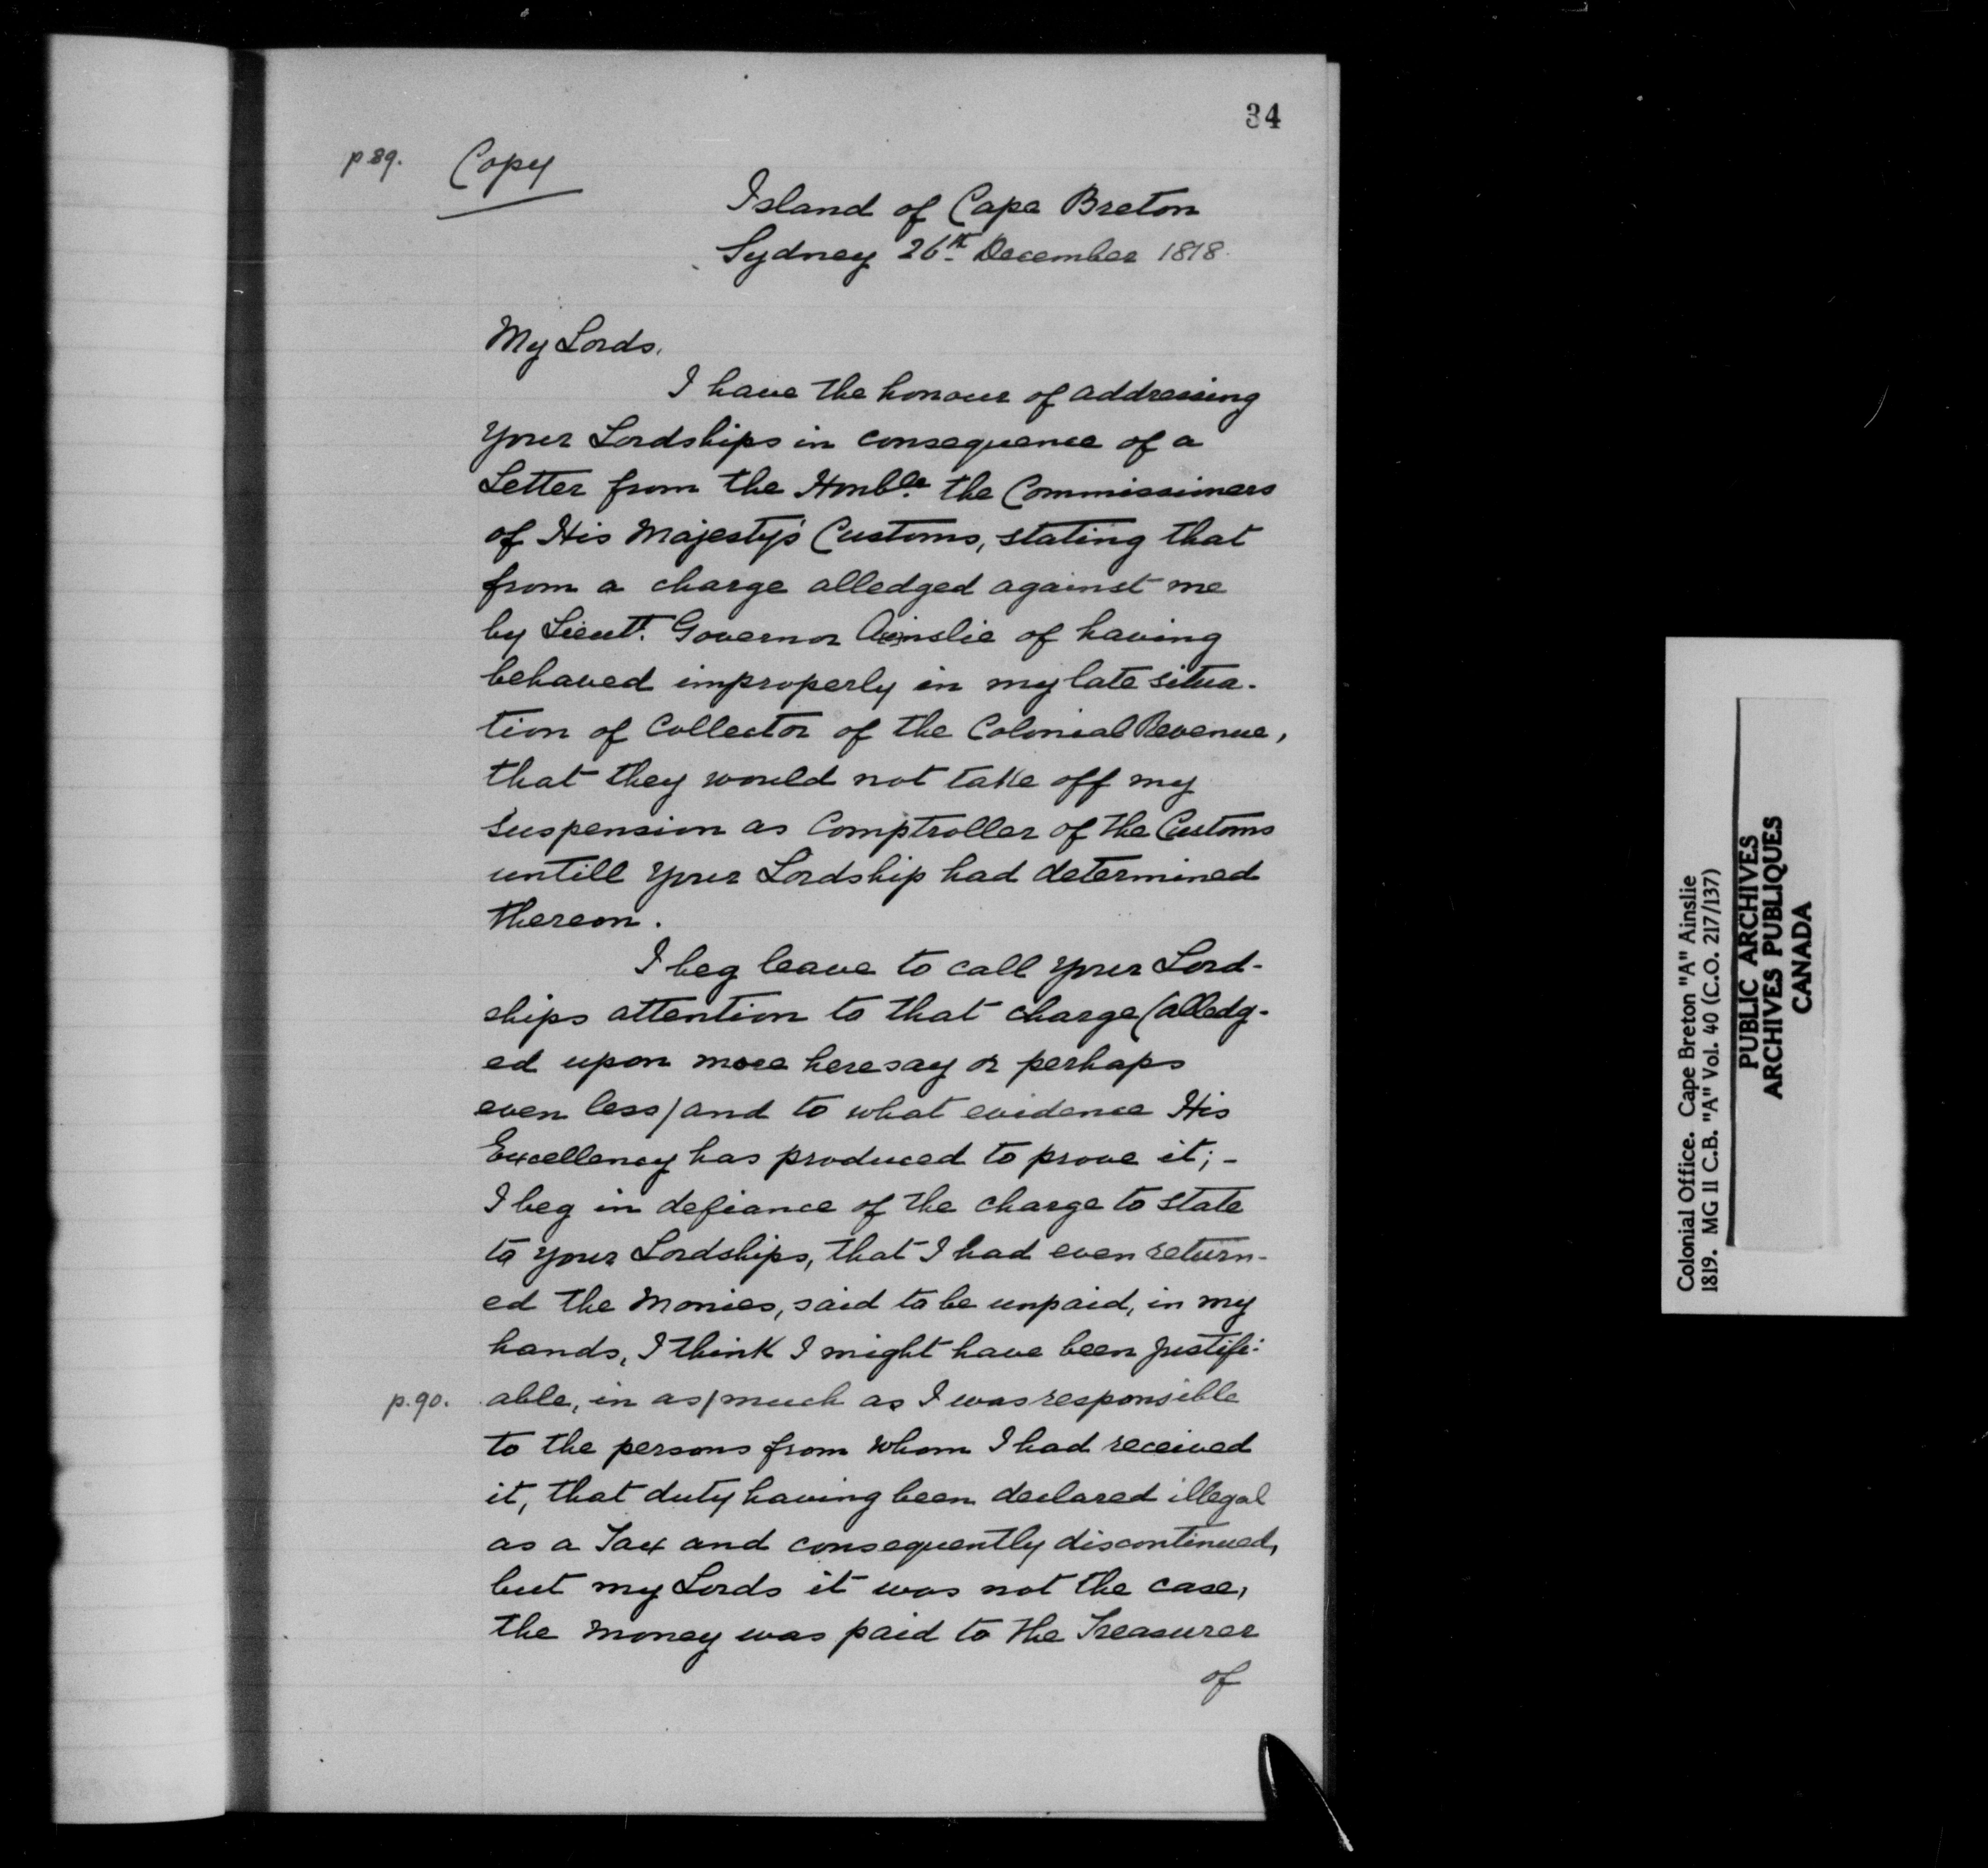 34
p 89. Copy
Island of Cape Breton
Sydney 26th December 1818.
My Lords,
I have the honour of addressing
Your Lordships in consequence of a
Letter from the Honble. the Commissioners
of His Majesty's Customs, stating that
from a charge alledged against me
by Lieut. Governor Ainslie of having
behaved improperly in my late situa-
tion of Collector of the Colonial Revenue,
that they would not take off my
suspension as Comptroller of the Customs
untill Your Lordship had determined
thereon.
I beg leave to call Your Lord-
ships attention to that charge (alledg-
ed upon mere heresay or perhaps
even less) and to what evidence His
Excellency has produced to prove it; -
I beg in defiance of the charge to state
to your Lordships, that I had even return-
ed the Monies, said to be unpaid, in my
hands, I think I might have been justifi-
p. 90. able, in as/much as I was responsible
to the persons from whom I had received
it, that duty having been declared illegal
as a Tax and consequently discontinued,
but my Lords it was not the case,
the money was paid to the Treasurer
of
Colonial Office. Cape Breton "A" Ainslie
1819. MG 11 C.B. "A" Vol. 40 (C.O. 217/137)
PUBLIC ARCHIVES
ARCHIVES PUBLIQUES
CANADA